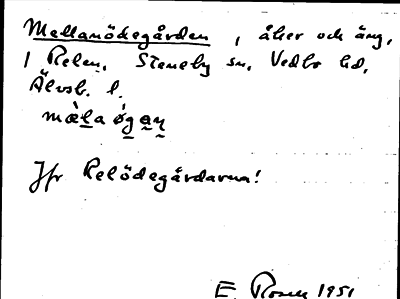 Mellanödegården, åker och äng,
I Relen, Steneby sn, Vedbo hd,
Älvsb. l.
mæ̀la ǿgan
Jfr Relödegårdarna!
E. Rosell 1951